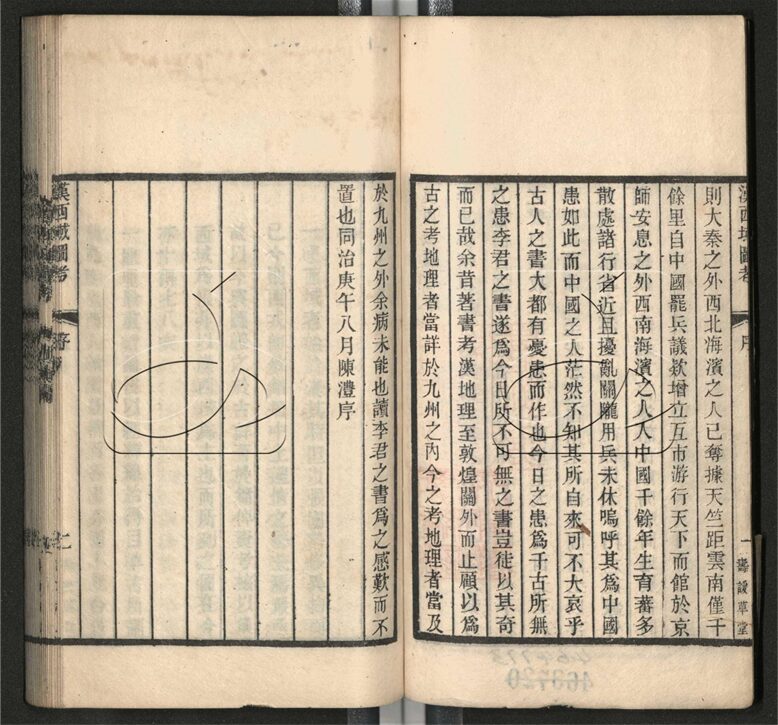 漢西域圖考
序
一
則大秦之外西北海濱之人已奪據天竺距雲南僅千
餘里自中國罷兵議欵增立互市游行天下而館於京
師安息之外西南海濱之人入中國千餘年生育蕃多
散處諸行省近且擾亂關隴用兵未休嗚呼其爲中國
患如此而中國之人茫然不知其所自來可不大哀乎
古人之書大都有憂患而作也今日之患爲千古所無
之患李君之書遂爲今日所不可無之書豈徒以其奇
而已哉余昔著書考漢地理至敦煌關外而止顧以爲
古之考地理者當詳於九州之內今之考地理者當及
於九州之外余病未能也讀李君之書爲之感歎而不
置也同治庚午八月陳澧序
漢西域圖考
序